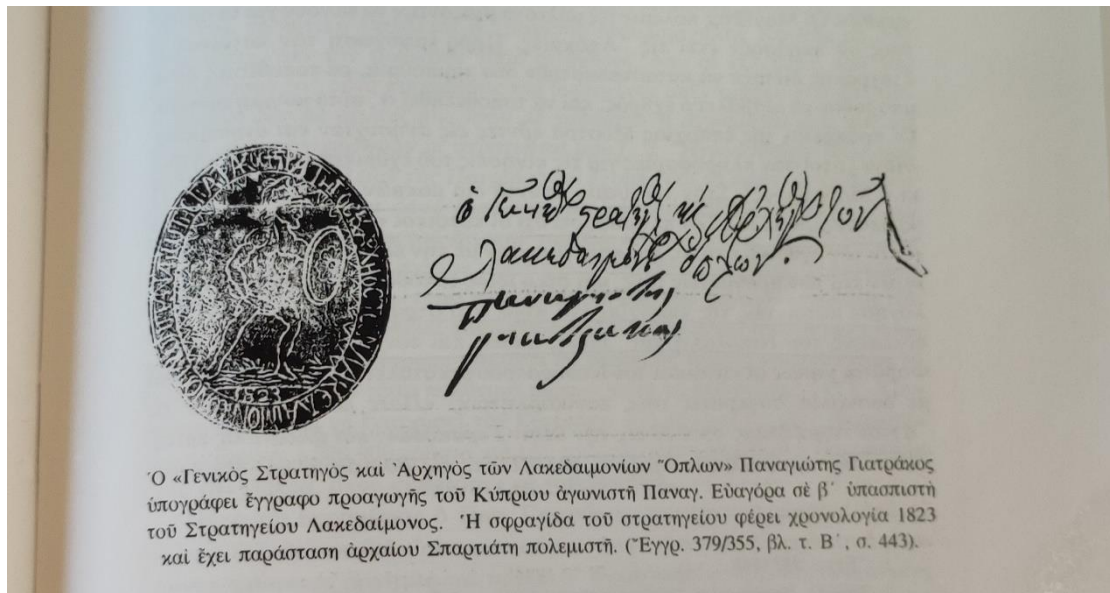 1823
ὁ Γενικὸς Στρατηγὸς καὶ Ἀρχηγὸς τῶν
Λακεδαιμονίων ὅπλων.
Παναγιώτης
γιατράκος
Ὁ «Γενικὸς Στρατηγὸς καὶ Ἀρχηγὸς τῶν Λακεδαιμονίων Ὅπλων» Παναγιώτης Γιατράκος
ὑπογράφει ἔγγραφο προαγωγῆς τοῦ Κύπριου ἀγωνιστῆ Παναγ. Εὐαγόρα σὲ β΄ ὑπασπιστὴ
τοῦ Στρατηγείου Λακεδαίμονος. Ἡ σφραγίδα τοῦ στρατηγείου φέρει χρονολογία 1823
καὶ ἔχει παράσταση ἀρχαίου Σπαρτιάτη πολεμιστῆ. (Ἔγγρ. 379/355, βλ. τ. Β΄, σ. 443).